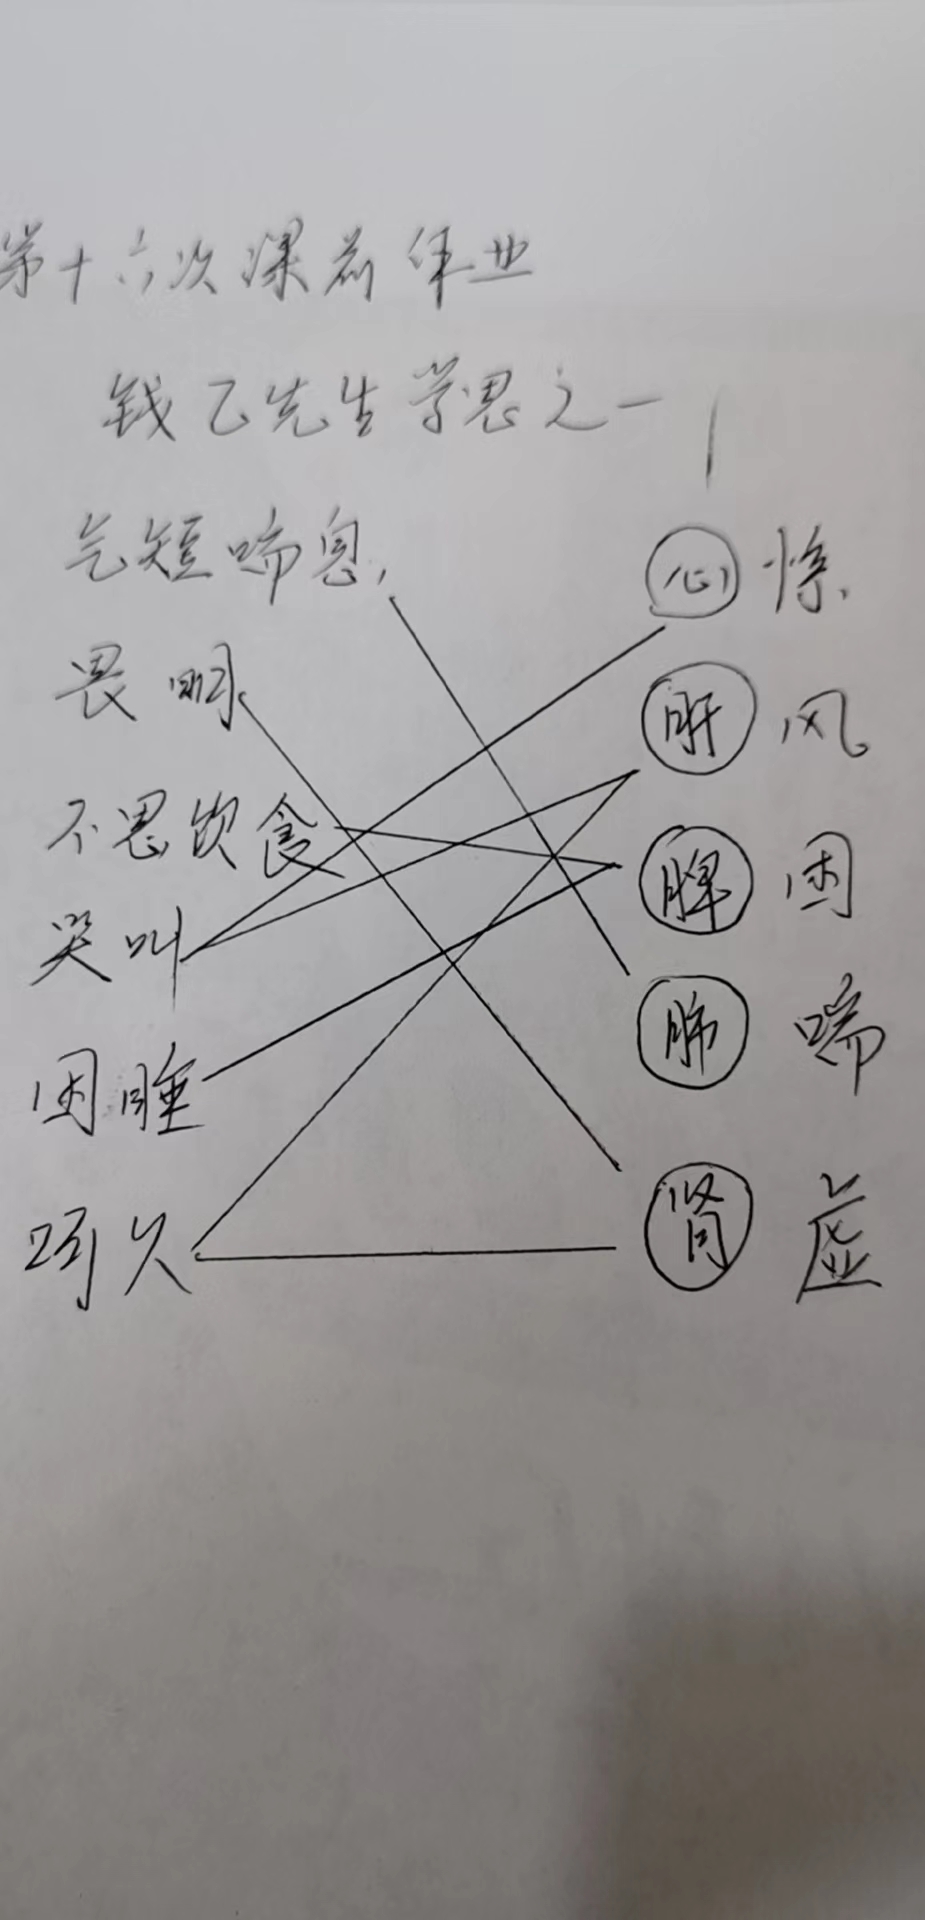 第十六次课前作业
钱乙先生学思之一
气短喘息,
畏明
不思饮食
哭叫
困睡
呵欠
心 惊
肝 风
脾 困
肺 喘
肾 虚